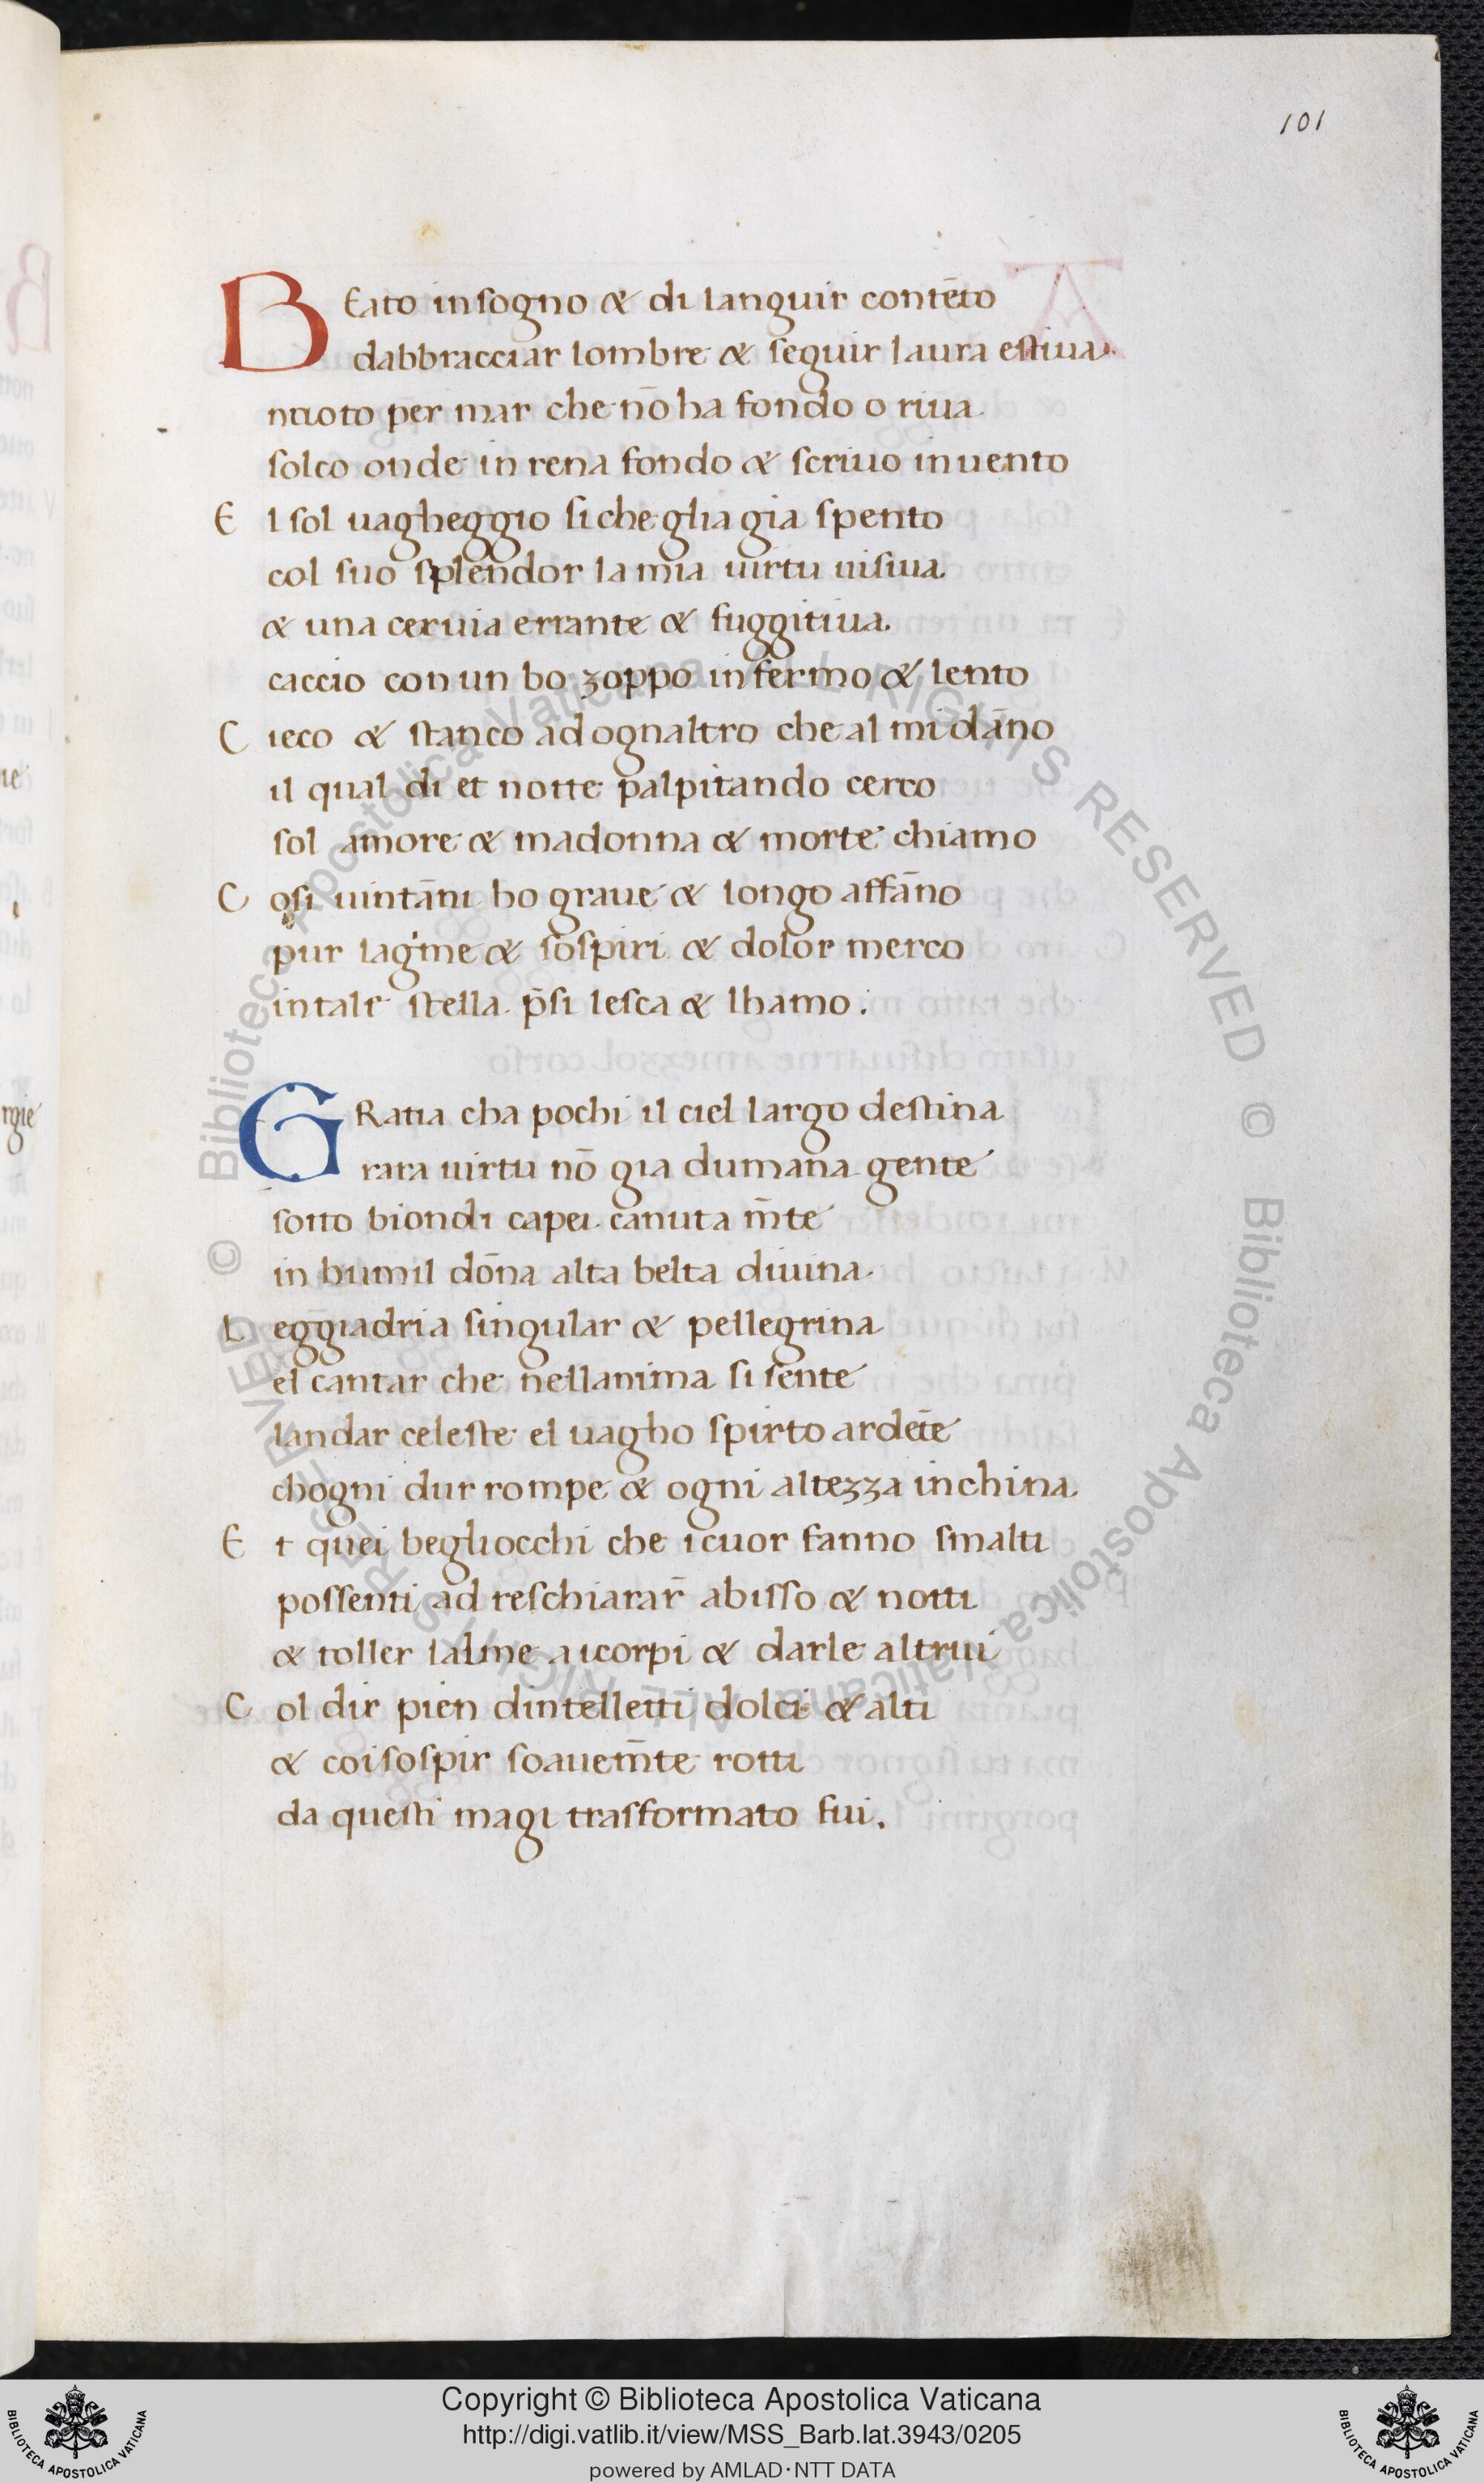 101
BEato in sogno & di languir contēto
dabbracciar lombre & seguir laura estiua
nuoto per mar che nō ha fondo o riua
solco onde in rena fondo & scriuo in uento
E l sol uagheggio si che glia gia spento
col suo splendor la mia uirtu uisiua
& una ceruia errante & fuggitiua
caccio con un bo zoppo infermo & lento
C ieco & stanco ad ognaltro che al mi dāno
il qual di et notte palpitando cerco
sol amore & madonna & morte chiamo
C osi uintāni ho graue & longo affāno
pur lagime & sospiri & dolor merco
in tale stella p̄si lesca & lhamo.
GRatia cha pochi il ciel largo destina
rara uirtu nō gia dumana gente
sotto biondi capei canuta m̄te
in humil dōna alta belta diuina
L eggiadria singular & pellegrina
el cantar che nellanima si sente
landar celeste el uagho spirto ardēte
chogni dur rompe & ogni altezza inchina
E t quei begliocchi che i cuor fanno smalti
possenti ad reschiarar̄ abisso & notti
& toller lalme ai corpi & darle altrui
C ol dir pien dintelletti dolci & alti
& coi sospir soauem̄te rotti
da questi magi trasformato fui.
© Biblioteca Apostolica Vaticana ALL RIGHTS RESERVED © Biblioteca Apostolica Vaticana ALL RIGHTS RESERVED
Copyright © Biblioteca Apostolica Vaticana
http://digi.vatlib.it/view/MSS_Barb.lat.3943/0205
powered by AMLAD·NTT DATA
BIBLIOTECA APOSTOLICA VATICANA
BIBLIOTECA APOSTOLICA VATICANA